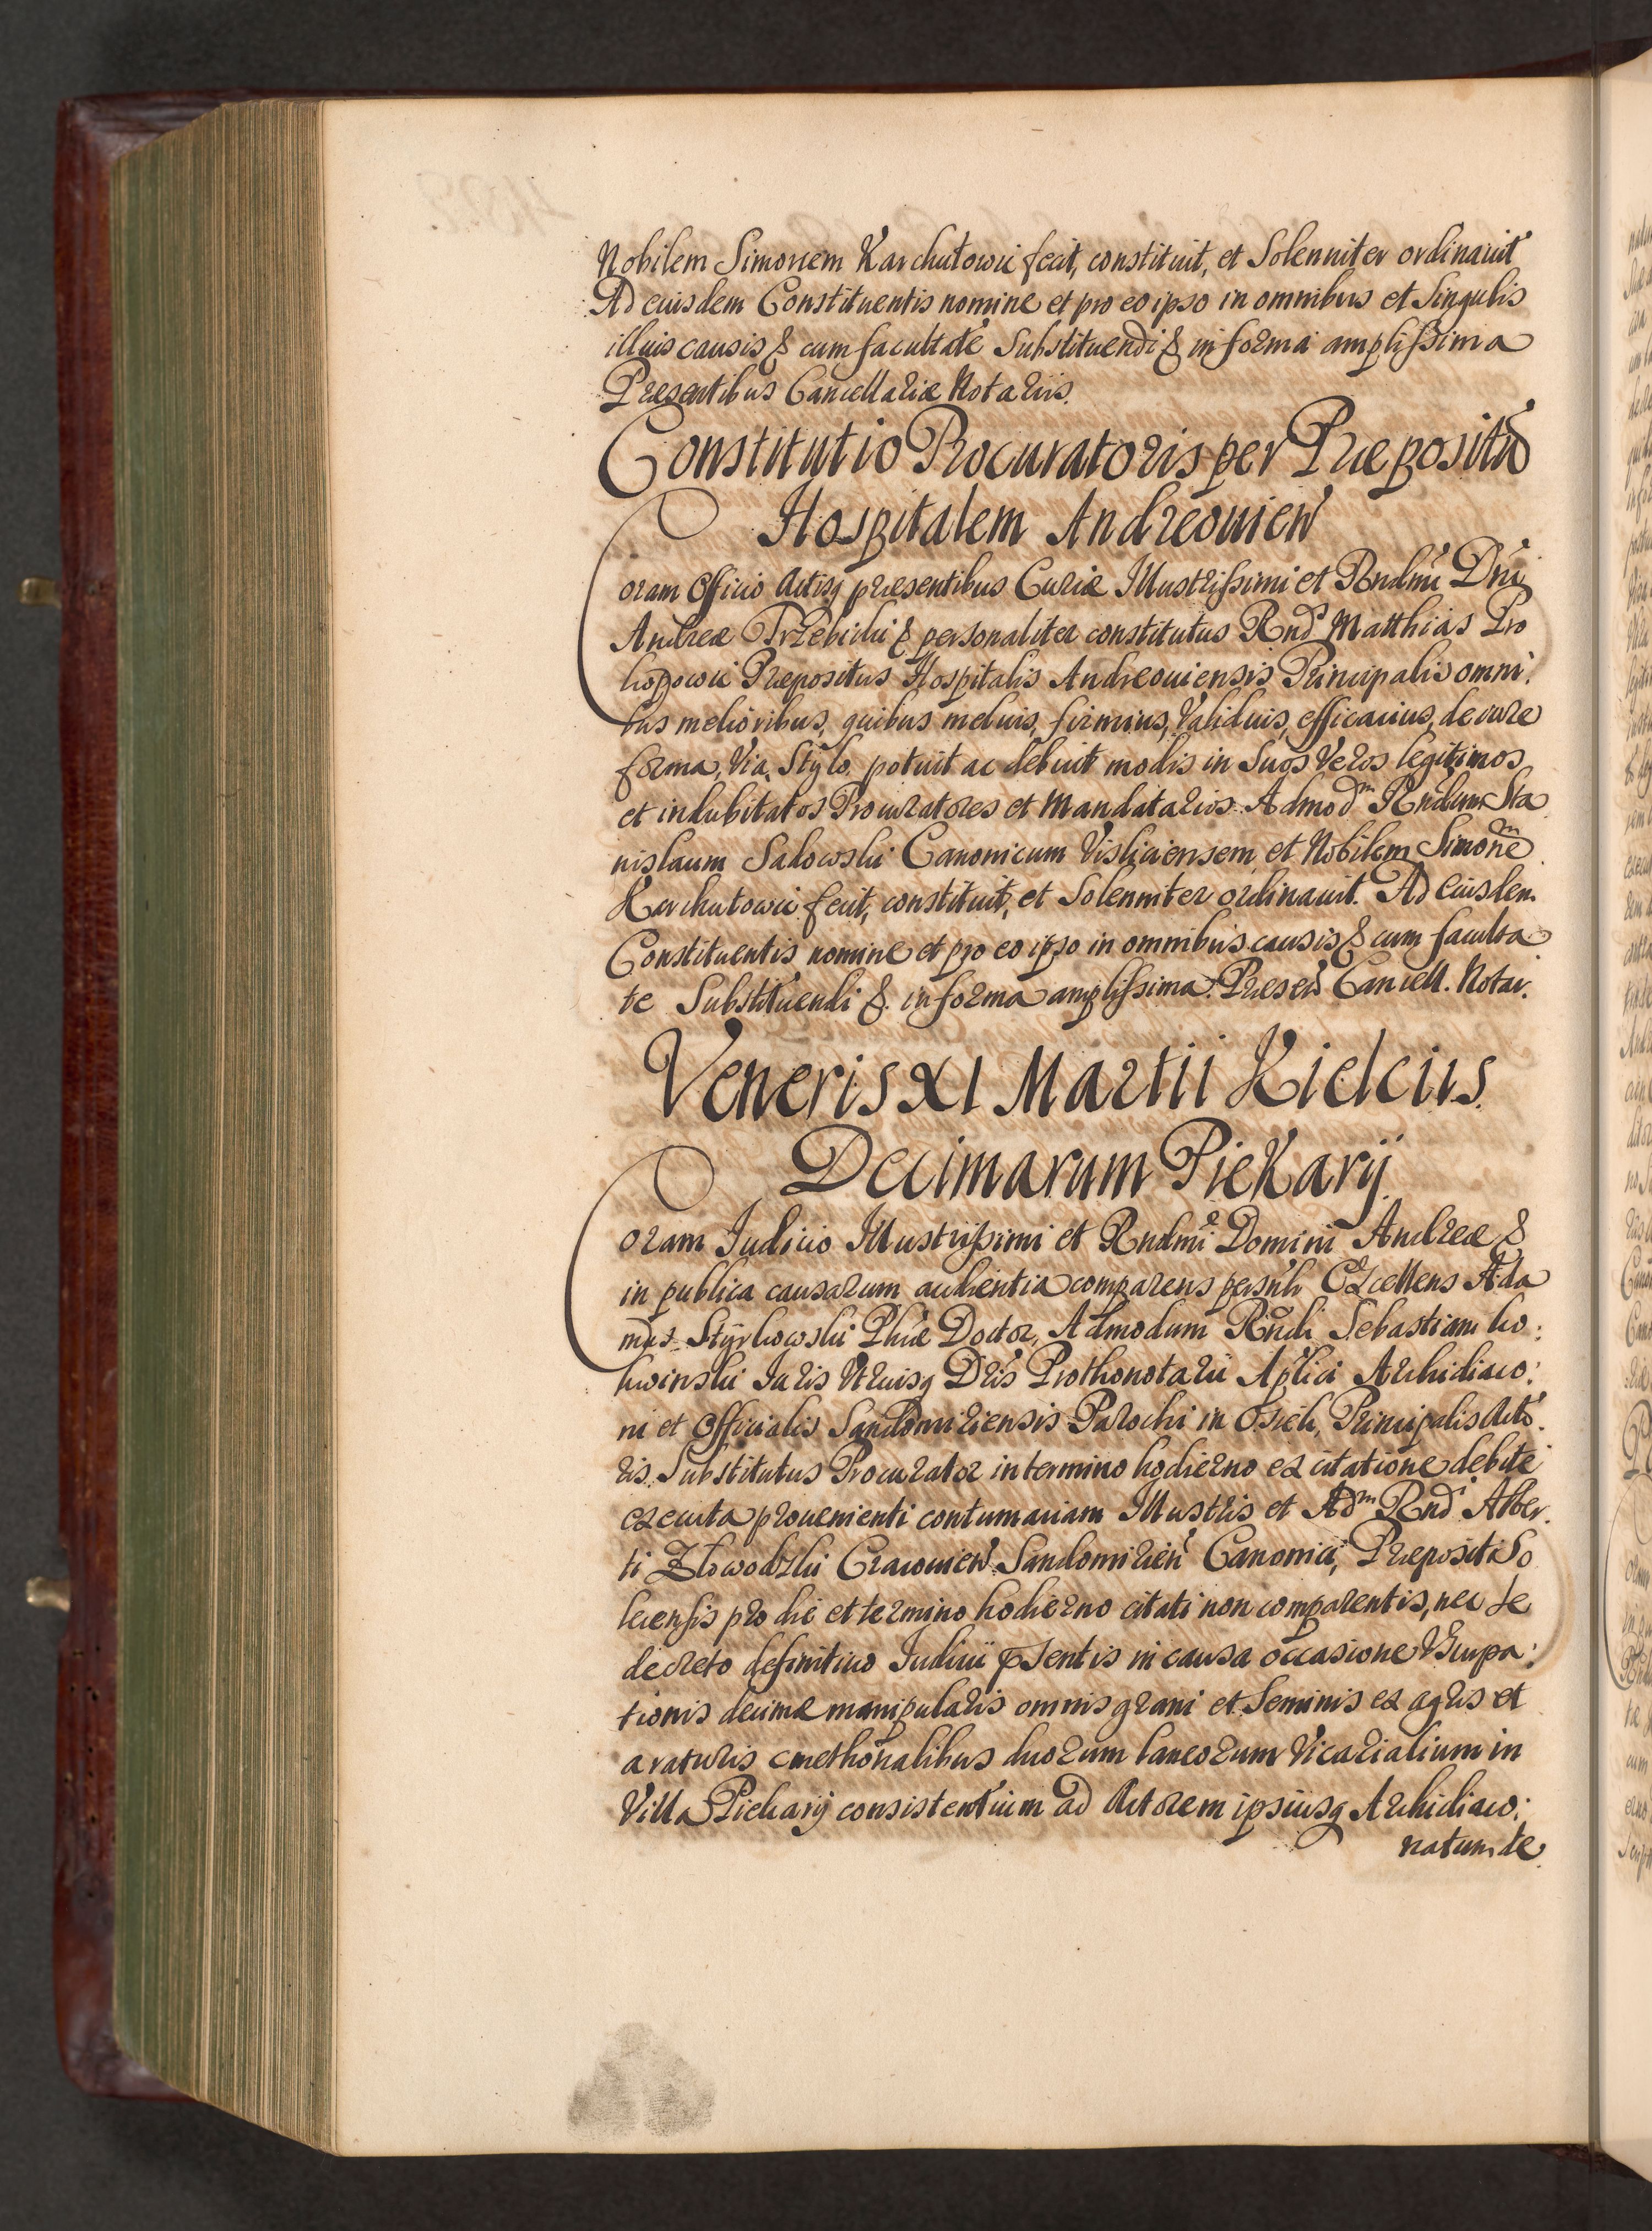 Nobilem Simonem Karchutowic fecit, constituit, et Solenniter ordinauit
Ad eiusdem Constituentis nomine et pro eo ipso in omnibus et Singulis
illius causis & cum facultate Substituendi & in forma amplissima
Præsentibus Cancellariæ Notariis.
Constitutio Procuratoris per Præpositũ
Hospitalem Andreouień
Coram Officio Actisq præsentibus Curiæ Illustrissimi et Rndmi Dni
Andreæ Trzebicki & personaliter constitutus Rnd Matthias Pro
kopowic Præpositus Hospitalis Andreouiensis Principalis omni:
bus melioribus, quibus melius, firmius, Validius, efficacius, de iure
forma, Via, Stylo potuit ac debuit modis in Suos Veros legitimos
et indubitatos Procuratores et Mandatarios Admodm Rndum Sta
nislaum Sadowski Canonicum Visliciensem et Nobilem Simonem
Karchutowic fecit, constituit, et Solenniter ordinauit. Ad Eiusdem
Constituentis nomine et pro eo ipso in omnibus causis & cum faculta
te Substituendi & in forma amplissima. Præseń Cancell. Notar.
Veneris XI Martii Kielciis.
Decimarum Piekarÿ
Coram Iudicio Illustrissimi et Rndmi Domini Andreæ &
in publica causarum audientia comparens persnlr Excellens Ada
mus Styrkowski Phiæ Doctor, Admodum Rndi Sebastiani Ko:
kwinski Iuris Vtriusq Dris Prothonotarii Aplici Archidiaco:
ni et Officialis Sandomiriensis Parochi in Osiek, Principalis Acto
ris. Substitutus Procurator in termino hodierno ex citatione debite
executa prouenienti contumaciam Illustris et Adm Rnd Alber
ti Zlowodzki Cracouień Sandomirień Canonici, Præpositi So
lecensis pro die et termino hodierno citati non comparentis, nec se
decreto definitiuo Iudicii psentis in causa occasione Vsurpa:
tionis decimæ manipularis omnis grani et Seminis ex agris et
araturis cmethonalibus duorum laneorum Vicarialium in
Villa Piekarÿ consistentium ad Actorem ipsiusq Archidiaco:
natum de